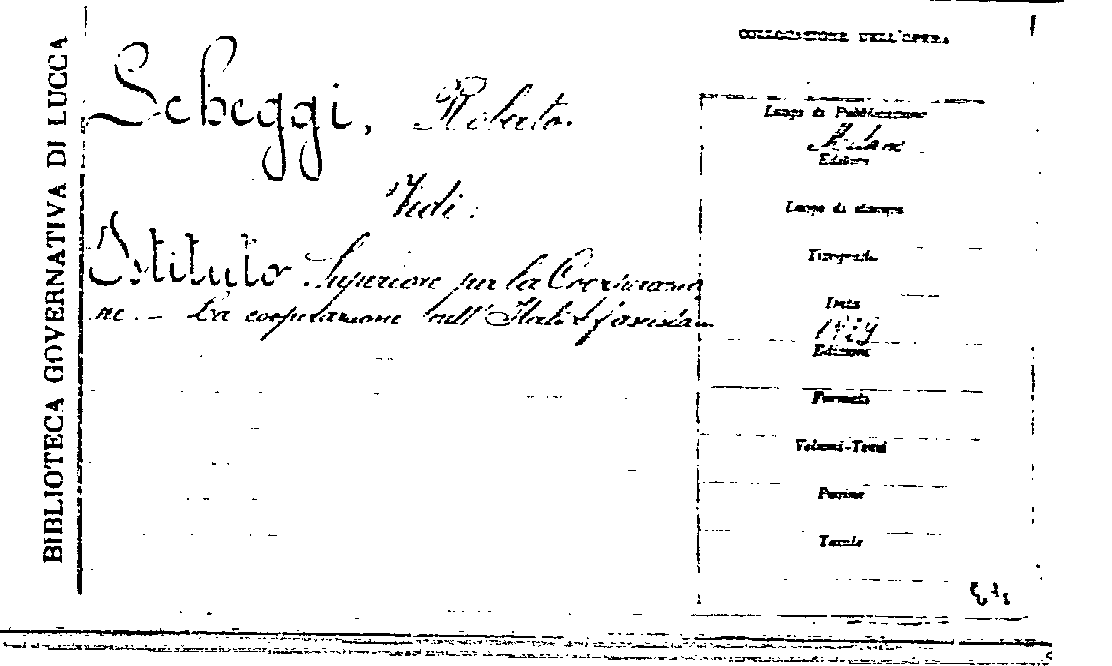 BIBLIOTECA GOVERNATIVA DI LUCCA
Scheggi, Roberto.
Vidi:
Istituto Superiore per la Cooperazio
ne. - La cooperazione nell'Italia fascista
COLLOCAZIONE DELL'OPERA
Luogo di Pubblicazione
Milano
Editore
Luogo di stampa
Tipografia
Data
1929
Edizione
Formato
Volumi-Tomi
Pagine
Tavole